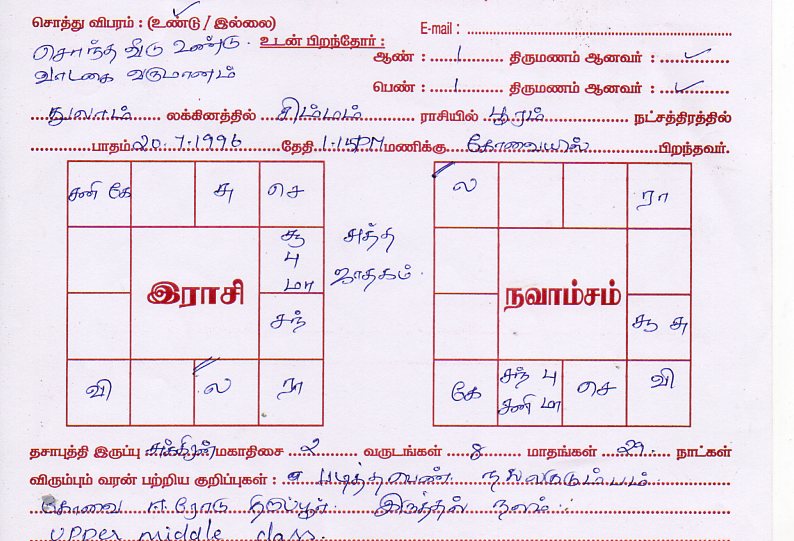 சொத்து விபரம் : (உண்டு / இல்லை)
E-mail :
சொந்த வீடு உண்டு. உடன் பிறந்தோர் :
ஆண் : 1 திருமணம் ஆனவர் : ✓
வாடகை வருமானம்
பெண் : 1 திருமணம் ஆனவர் : ✓
துலாம் லக்கினத்தில் சிம்மம் ராசியில் பூரம் நட்சத்திரத்தில்
பாதம் 20.7.1996 தேதி 1.15PM மணிக்கு கோவையில் பிறந்தவர்.
சனி கே சு செ
சூ பு மா
சுத்த ஜாதகம்.
இராசி
சந்
வி ல ரா
ல ரா
நவாம்சம்
சூ சு
கே சந் பு சனி மா செ வி
தசாபுத்தி இருப்பு சுக்கிரன் மகாதிசை 2 வருடங்கள் 8 மாதங்கள் 29 நாட்கள்
விரும்பும் வரன் பற்றிய குறிப்புகள் : படித்த பெண் நல்ல குடும்பம்
கோவை ஈரோடு திருப்பூர் இருத்தல் நலம்.
upper middle class.